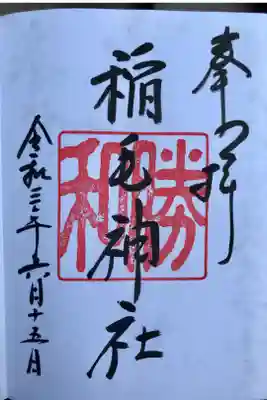 奉拝
勝和
稲毛神社
令和三年六月十五日